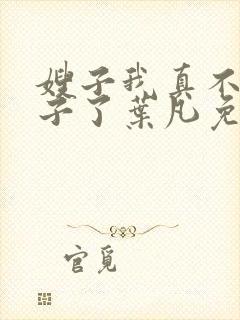 嫂子我真不
子了葉凡免
官覓